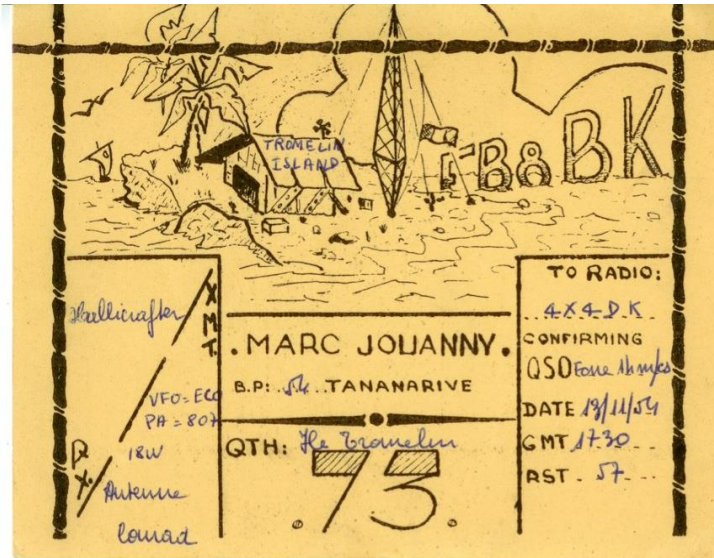 TROMELIN
ISLAND
FB8BK
XMT.
Hallicrafter
VFO = ECO
PA = 807
18W
RX.
Antenne
Conrad
. MARC JOUANNY .
B.P: 54 TANANARIVE
QTH: Ile Tromelin
73
TO RADIO:
4X4DK
CONFIRMING
QSO Fone
DATE 13/11/54
GMT 1730
RST. 57